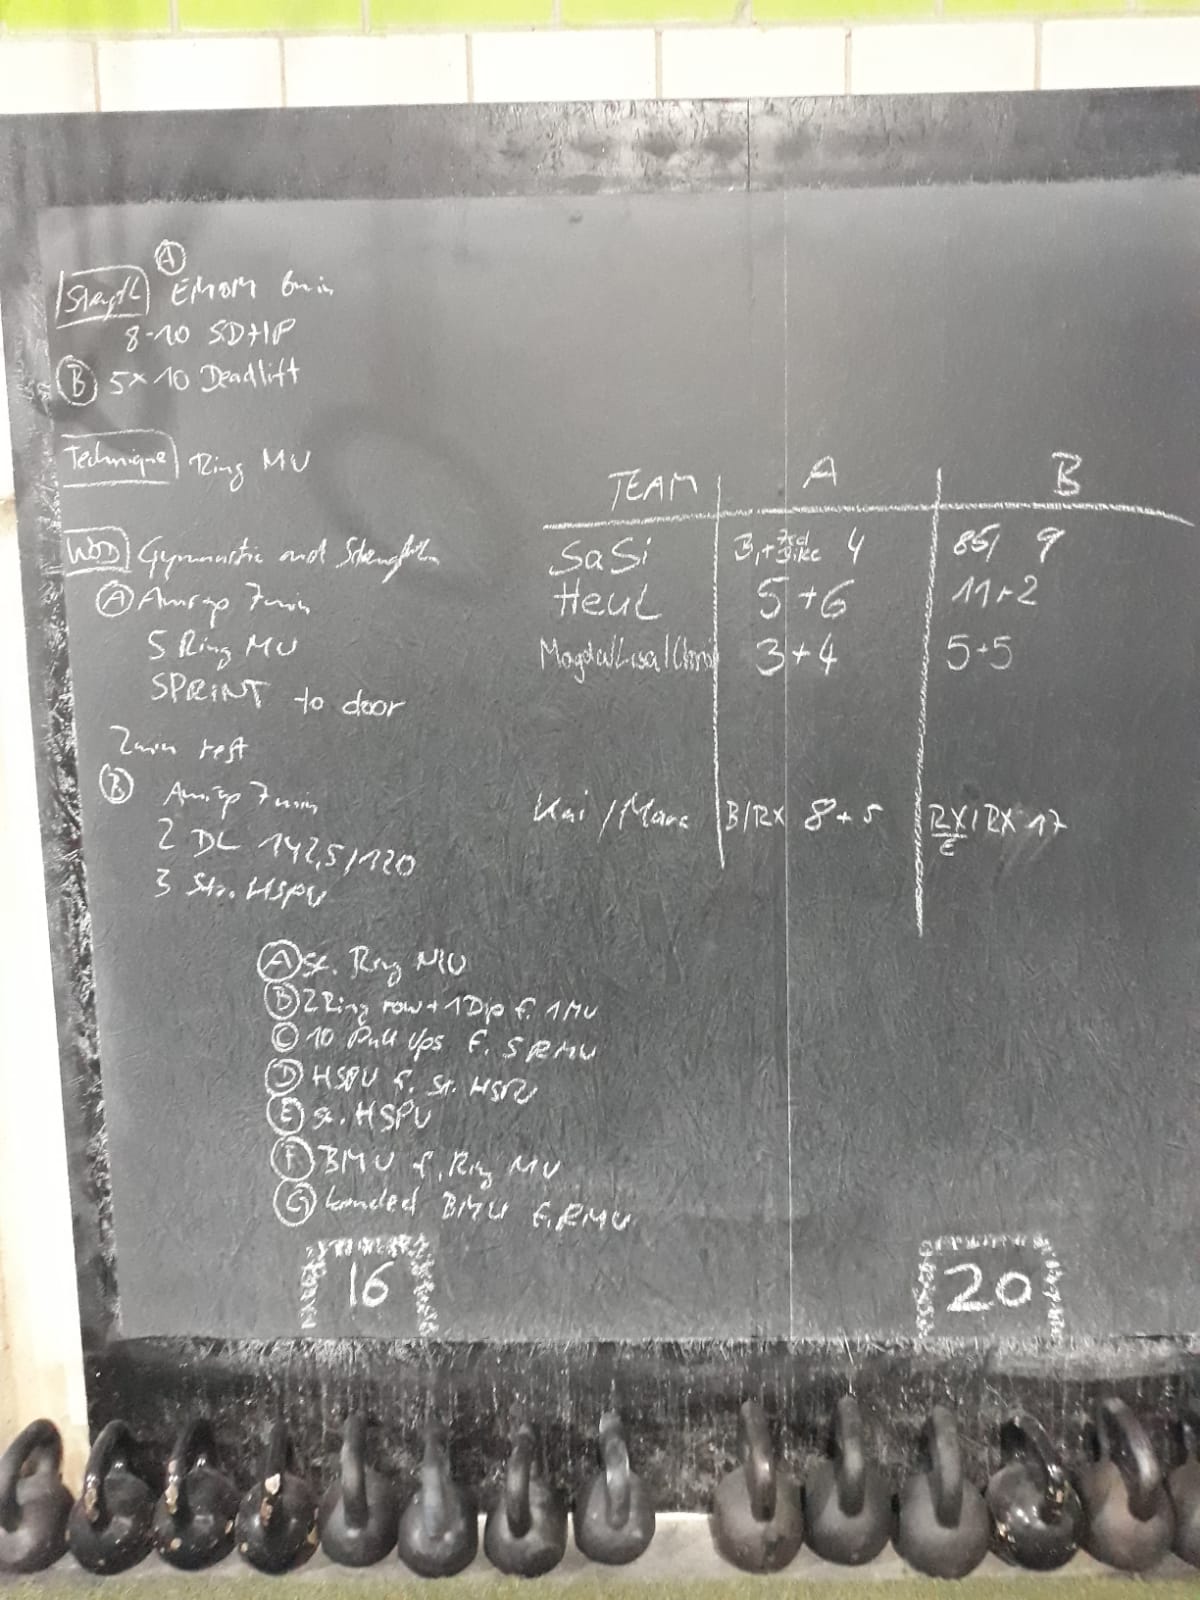 A
Strength EMOM 6min
8-10 SDHP
B 5x10 Deadlift
Technique Ring MU
WOD Gymnastic and Strength
A Amrap 7min
5 Ring MU
SPRINT to door
2min rest
B Amrap 7min
2 DL 142,5/120
3 Str. HSPU
TEAM A B
SaSi B,+ Bike 4 85/ 9
HeuL 5+6 11+2
Magda/Lisa/ 3+4 5+5
Kai/Marc B/RX 8+5 RX/RX 17
E
A sc. Ring MU
B 2 Ring row + 1 Dip f. 1 MU
C 10 Pull Ups f. 5 RMU
D HSPU f. Str. HSPU
E sc. HSPU
F BMU f. Ring MU
G banded BMU f. RMU
16
20